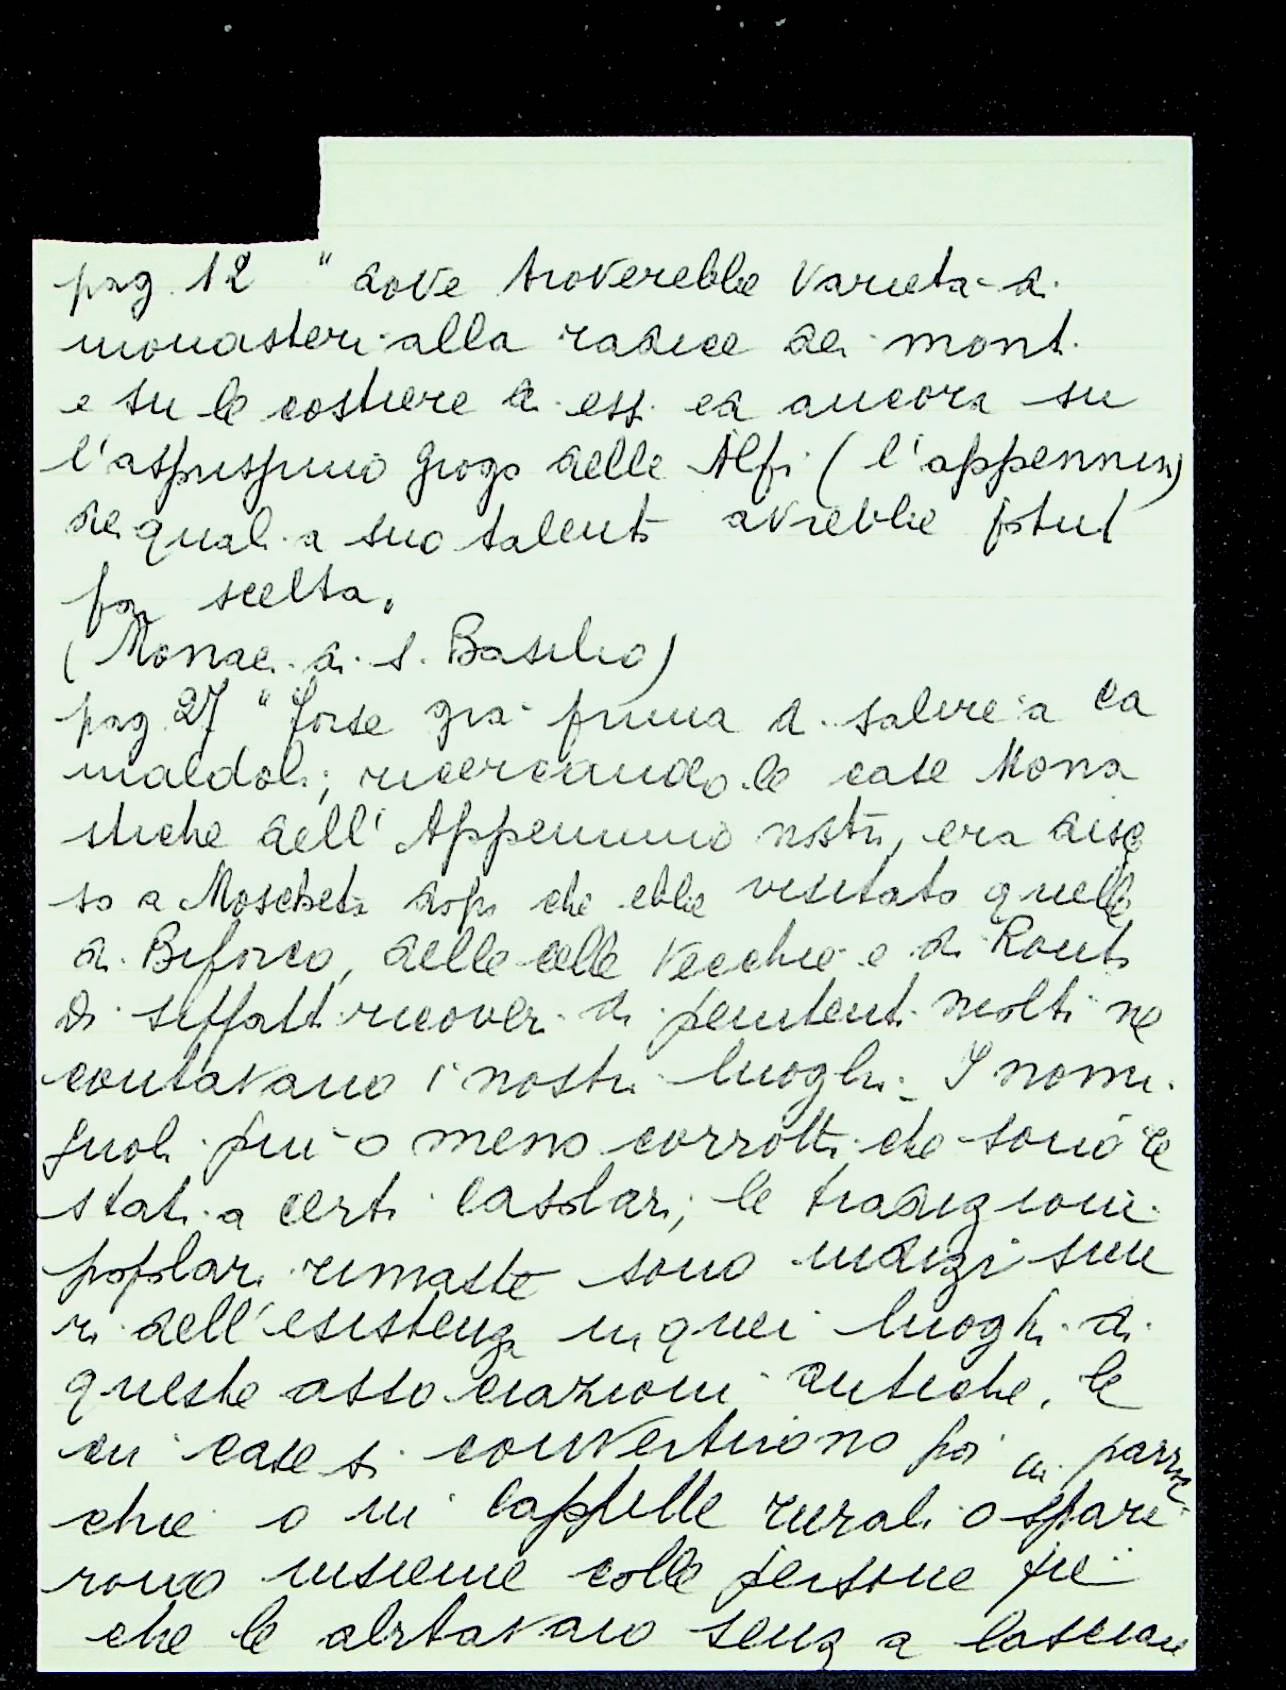 pag. 12 " dove troverebbe varietà di
monasteri alla radice dei monti
e su le costiere di essi ed ancora su
l'asprissimo giogo delle Alpi (l'appennino)
dei quali a suo talento avrebbe potuto
far scelta.
(Monaci di S. Basilio)
pag 27 " Forse già prima di salire a Ca
maldoli; ricercando le case Mona
stiche dell'Appennino nostro, era disce
so a Moscheta dopo che ebbe visitato quelle
di Biforco, delle celle Vecchie e di Ronta
Di siffatti ricoveri di penitenti molti ne
contavano i nostri luoghi. I nomi
gnoli più o meno corrotti che sono re
stati a certi casolari; le tradizioni
popolari rimaste sono indizi sicu
ri dell'esistenza in quei luoghi di
queste associazioni antiche, le
cui case si convertirono poi in parroc
chie o in Cappelle rurali o spari
rono insieme colle persone pie
che le abitavano senza lasciare